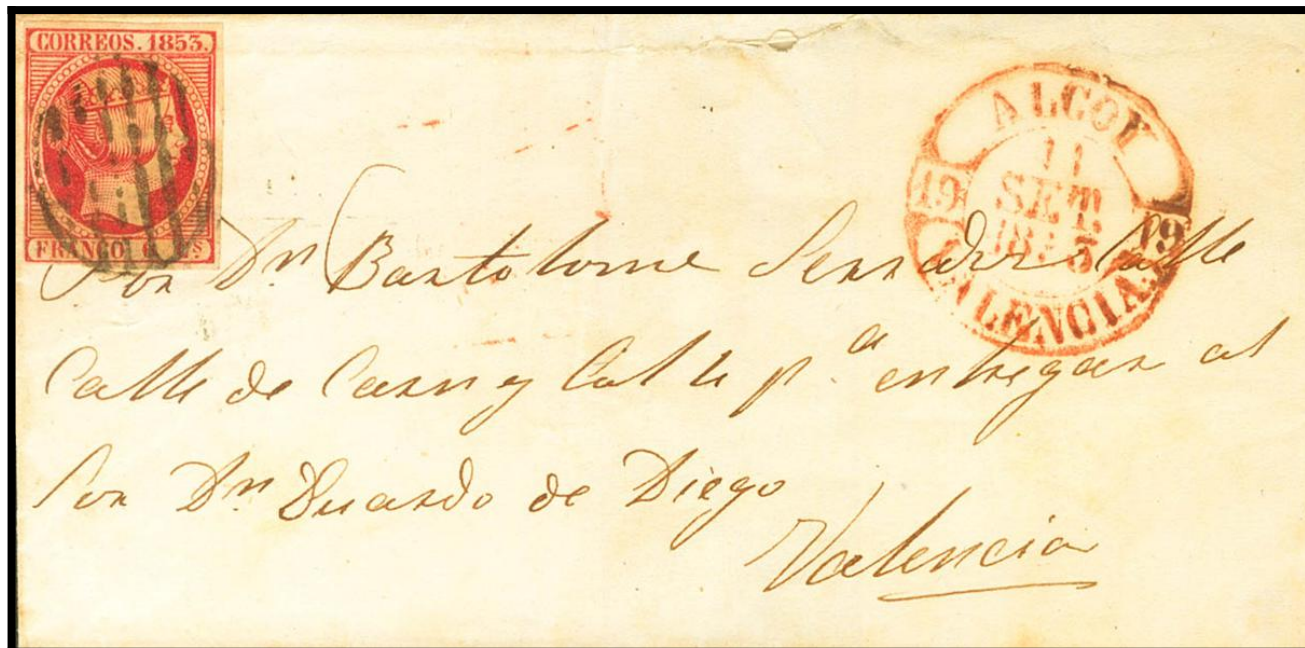 CORREOS. 1853.
FRANCO 6 Cs
ALCOY
11
SET.
19 19
VALENCIA.
Sor Dn Bartolome Calle
Calle de y pa entregar al
Sor Dn Duardo de Diego
Valencia